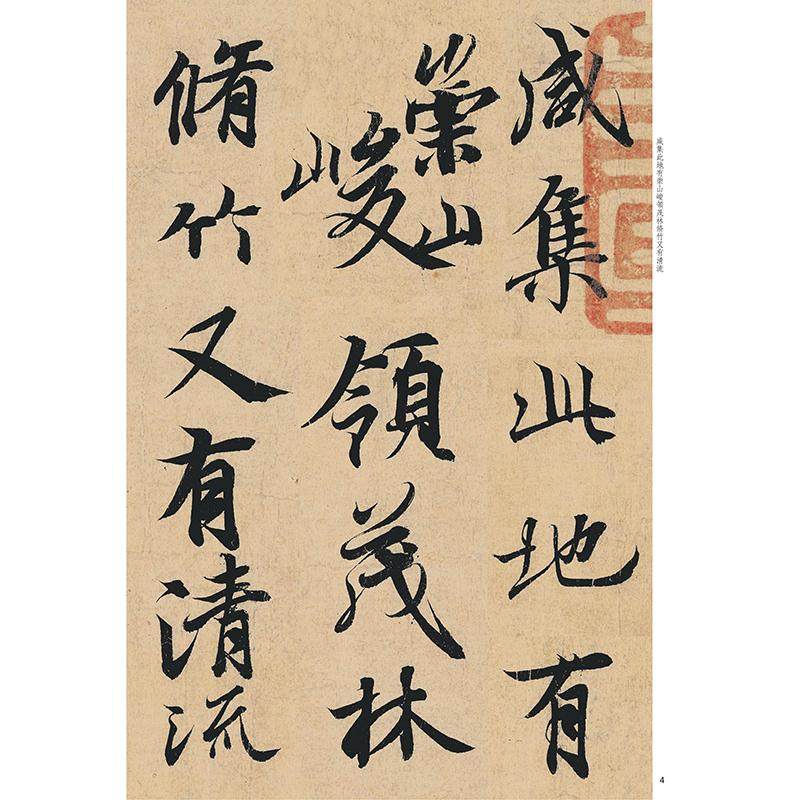 咸集此地有
崇山峻領茂林
脩竹又有清流
咸集此地有崇山峻領茂林脩竹又有清流
4